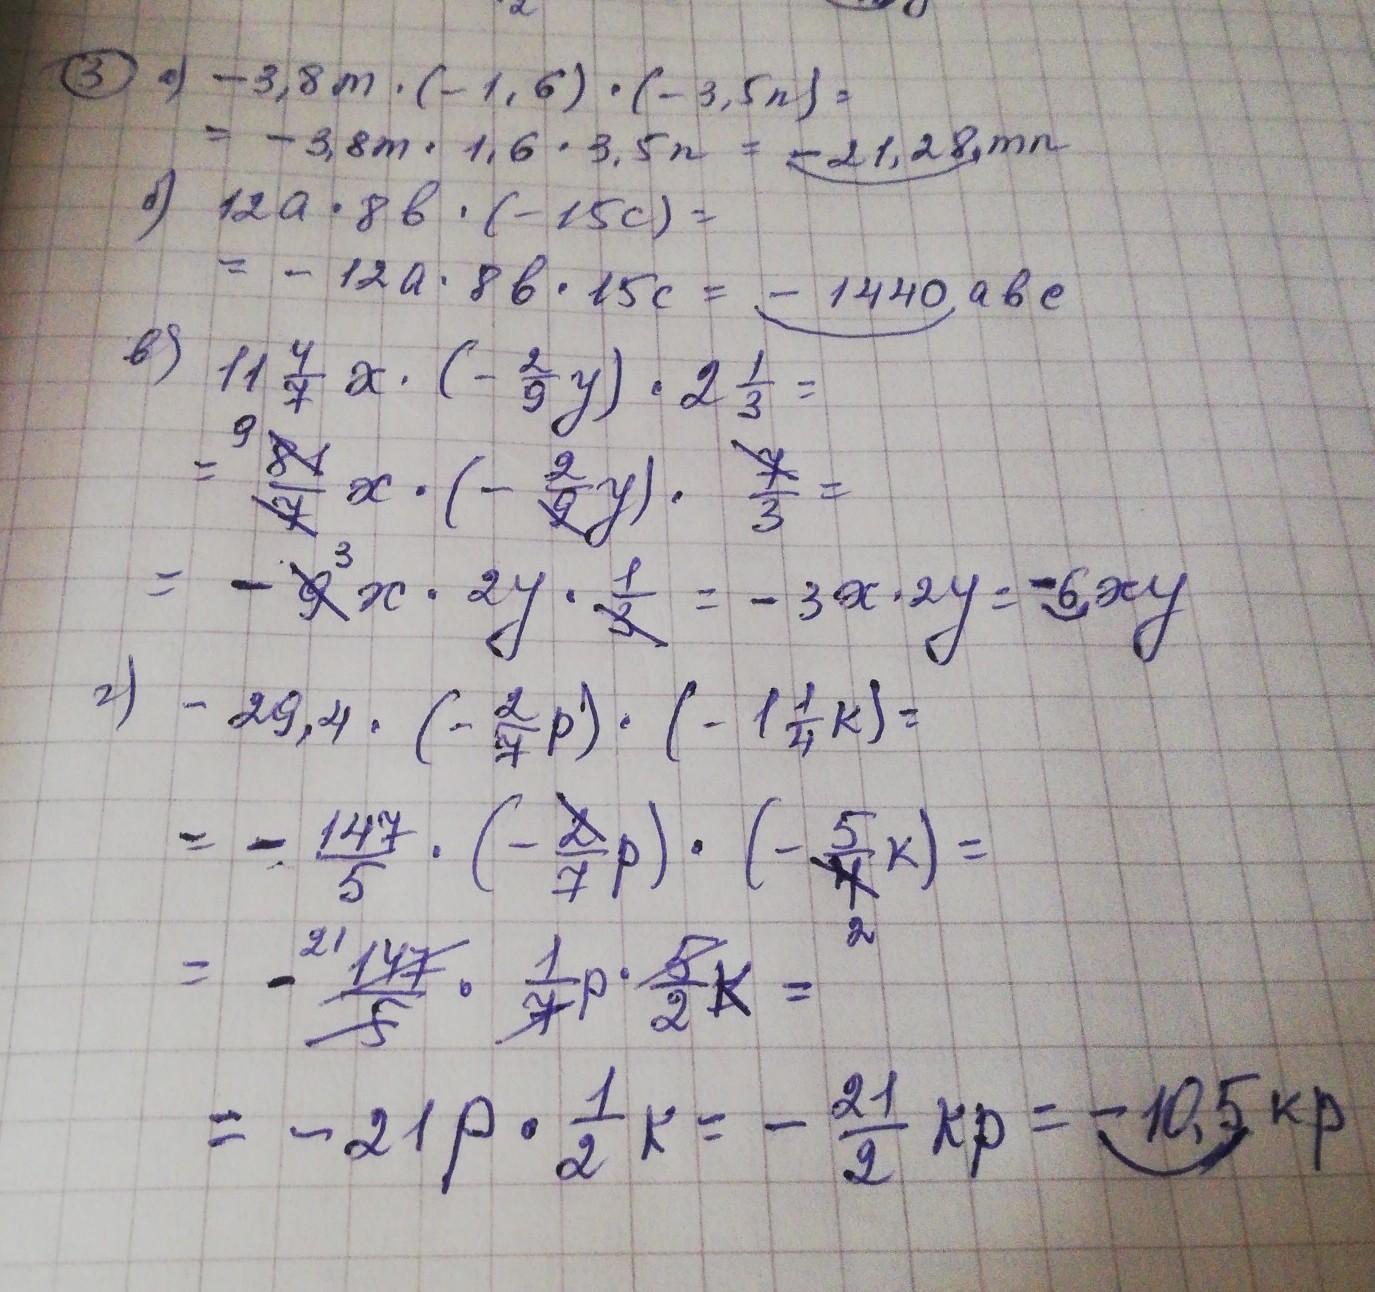 3 а) -3,8m · (-1,6) · (-3,5n) =
= -3,8m · 1,6 · 3,5n = -21,28mn
б) 12a · 8b · (-15c) =
= - 12a · 8b · 15c = - 1440 abc
в) 11 4/7 x · (- 2/9 y) · 2 1/3 =
= 9 81/7 x · (- 2/9 y) · 7/3 =
= - 9 3 x · 2y · 1/3 = - 3x · 2y = -6xy
г) - 29,4 · (- 2/7 p) · (- 1 1/4 k) =
= - 147/5 · (- 2/7 p) · (- 5/4 k) =
2
= - 21 147/5 · 1/7 p · 5/2 k =
= - 21p · 1/2 k = - 21/2 kp = -10,5 kp